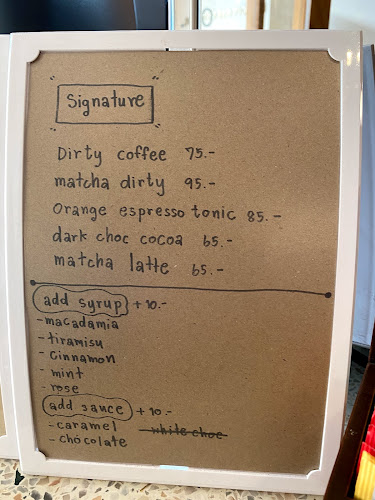 Signature
Dirty coffee 75.-
matcha dirty 95.-
Orange espresso tonic 85.-
dark choc cocoa 65.-
matcha latte 65.-
add syrup +10.-
- macadamia
- tiramisu
- cinnamon
- mint
- rose
add sauce +10.-
- caramel white choc
- chocolate